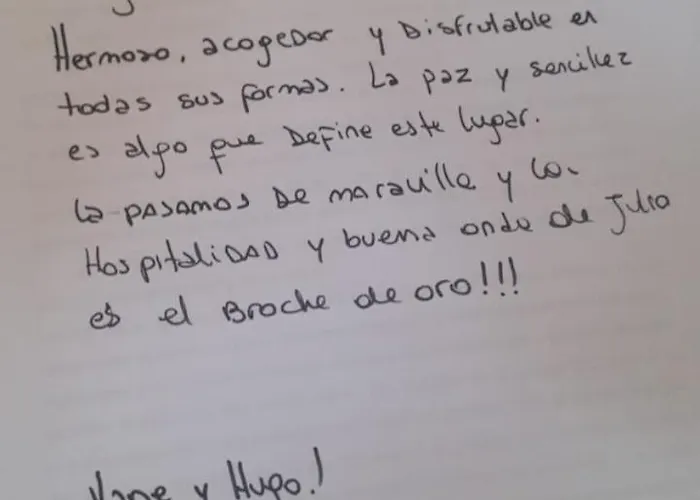 Hermoso, acogedor y Disfrutable en
todas sus formas. La paz y sencillez
es algo que Define este lugar.
La pasamos De maravilla y la
Hospitalidad y buena onda de Julia
es el Broche de oro!!!
y Hugo!